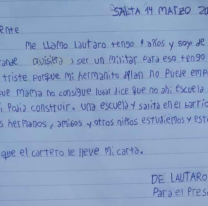 SALTA 14 MARZO 20
ente
Me LLamo Lautaro tengo años y soy de
rande quisiera ser un Militar Para eso tengo
triste Porque Mi hermanito Alan no Puede emp
ue Mama no consigue lugar dice que no ahi escuela
i Podia construir una escuela y salita en el barrio
s hermanos, amigos y otros niños estudiemos y est
que el cartero le lleve Mi carta.
DE LAUTARO
Para el Pres